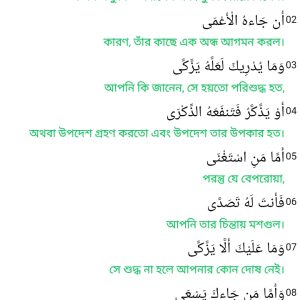 02 أَن جَاءهُ الْأَعْمَى
কারণ, তাঁর কাছে এক অন্ধ আগমন করল।
03 وَمَا يُدْرِيكَ لَعَلَّهُ يَزَّكَّى
আপনি কি জানেন, সে হয়তো পরিশুদ্ধ হত,
04 أَوْ يَذَّكَّرُ فَتَنفَعَهُ الذِّكْرَى
অথবা উপদেশ গ্রহণ করতো এবং উপদেশ তার উপকার হত।
05 أَمَّا مَنِ اسْتَغْنَى
পরন্তু যে বেপরোয়া,
06 فَأَنتَ لَهُ تَصَدَّى
আপনি তার চিন্তায় মশগুল।
07 وَمَا عَلَيْكَ أَلَّا يَزَّكَّى
সে শুদ্ধ না হলে আপনার কোন দোষ নেই।
08 وَأَمَّا مَن جَاءكَ يَسْعَى